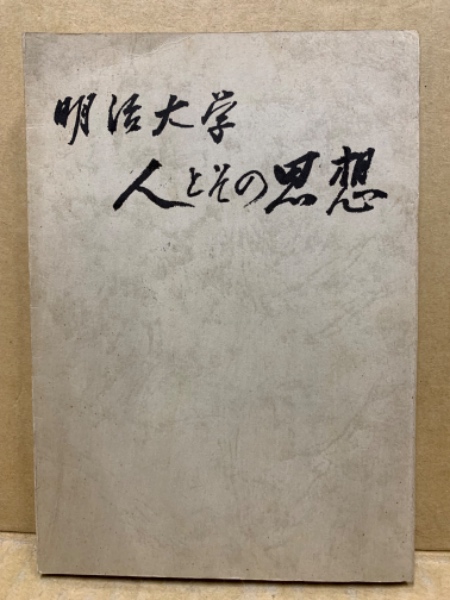 明治大学
人とその思想